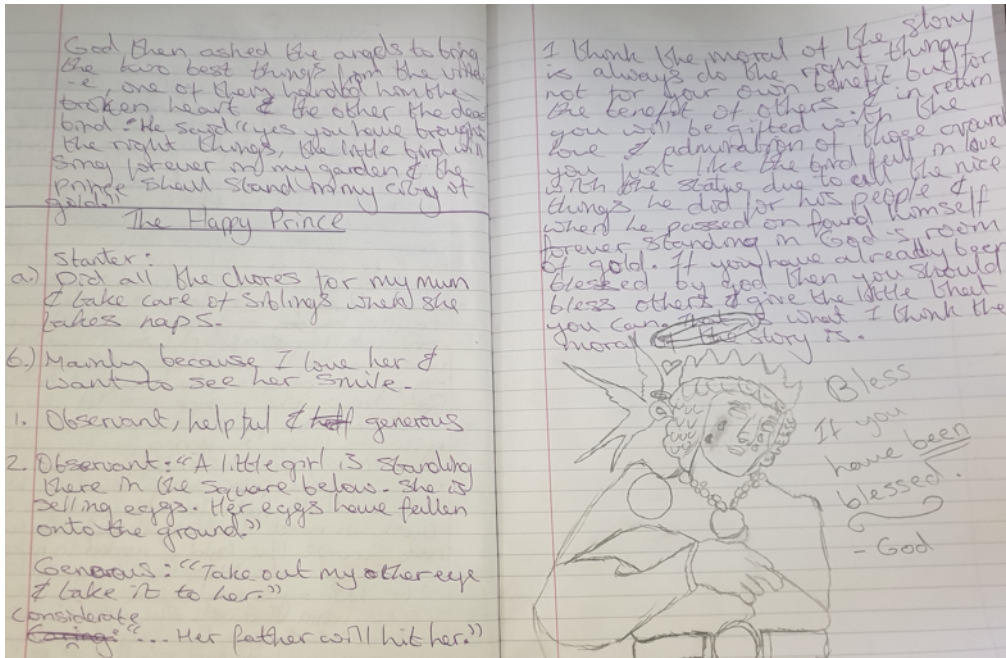 God then asked the angels to bring
the two best things from the villa
-e, one of them handed him the
broken heart & the other the dead
bird. He said "yes you have brought
the right things, the little bird will
sing forever in my garden & the
prince shall stand in my city of
gold."
The Happy Prince
Starter:
a.) Did all the chores for my mum
& take care of siblings when she
takes naps.
b.) Mainly because I love her &
want to see her smile.
1. Observant, helpful & generous
2. Observant: "A little girl is standing
there in the square below. She is
selling eggs. Her eggs have fallen
onto the ground."
Generous: "Take out my other eye
& take it to her."
Considerate
Caring: "... Her father will hit her."
I think the moral of the story
is always do the right thing,
not for your own benefit but for
the benefit of others & in return
you will be gifted with the
love & admiration of those around
you just like the bird fell in love
with the statue due to all the nice
things he did for his people &
when he passed on found himself
forever standing in God's room
of gold. If you have already been
blessed by god then you should
bless others & give the little that
you can. is what I think the
moral of the story is.
Bless
If you
have been
blessed.
- God